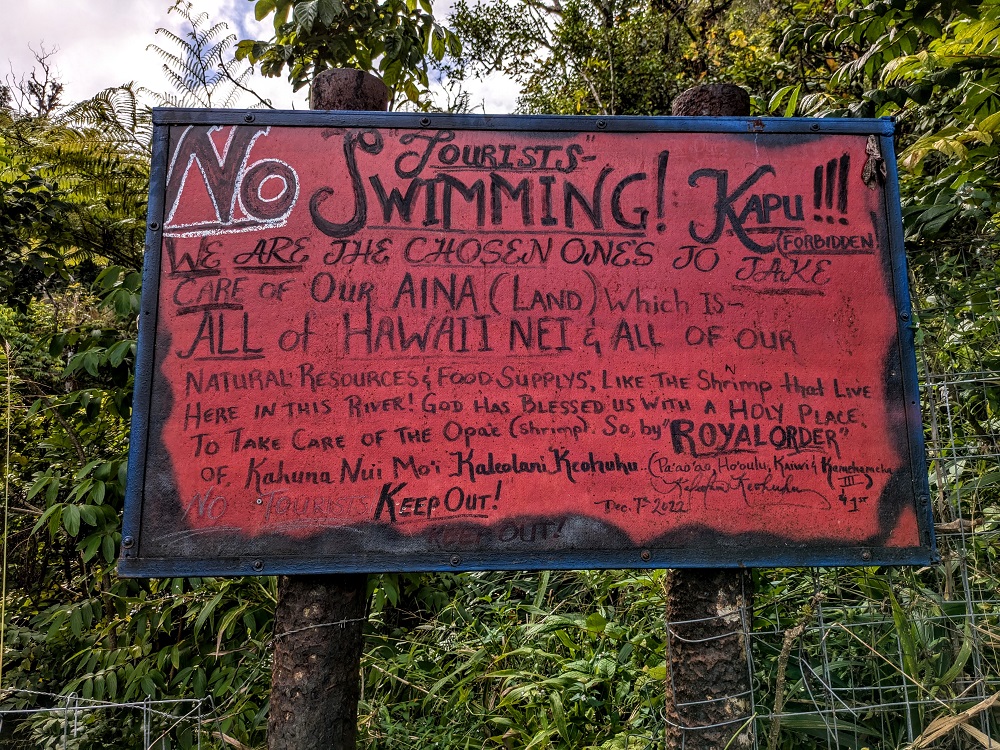 "TOURISTS"
NO SWIMMING! KAPU!!!
(FORBIDDEN)
WE ARE THE CHOSEN ONE'S TO TAKE
CARE OF OUR AINA (LAND) WHICH IS-
ALL of HAWAII NEI & ALL OF OUR
NATURAL RESOURCES & FOOD SUPPLYS, LIKE THE SHRIMP that LIVE
HERE IN THIS RIVER! GOD HAS BLESSED US WITH A HOLY PLACE.
TO TAKE CARE OF THE OPAE (shrimp). SO, by "ROYAL ORDER"
OF, KAHUNA NUI MO'I KALEOLANI KEOHUHU. (PA'AO'AO, HO'OULU, KAIWI & KAMEHAMEHA
III
& 1st
NO TOURISTS KEEP OUT! DEC. 7th 2022
KEEP OUT!